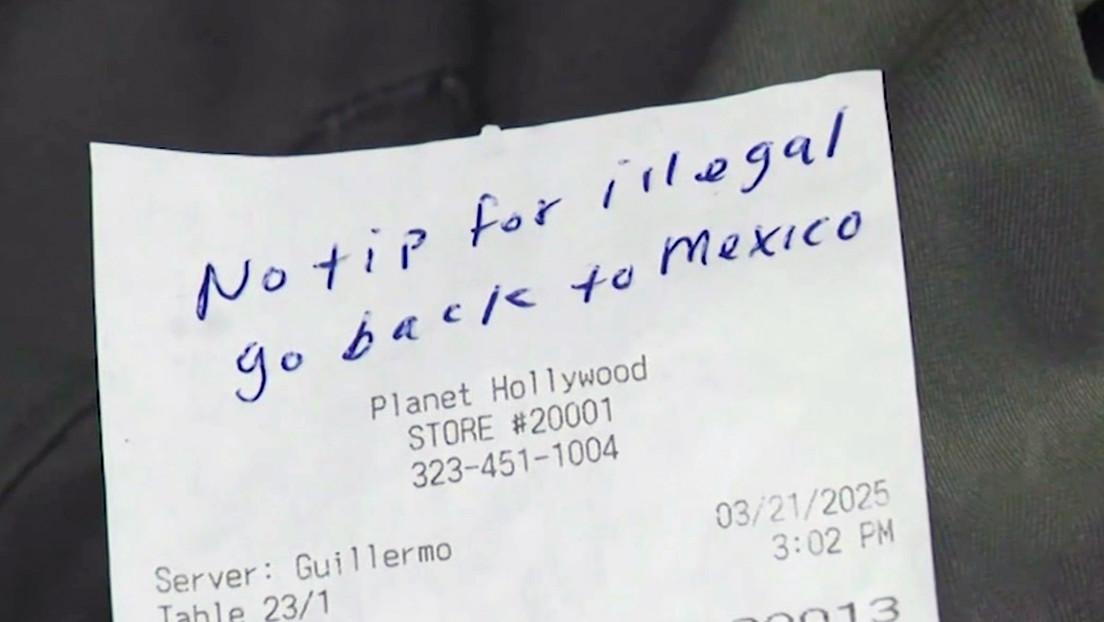 No tip for illegal
go back to mexico
Planet Hollywood
STORE #20001
323-451-1004
03/21/2025
3:02 PM
Server: Guillermo
Table 23/1